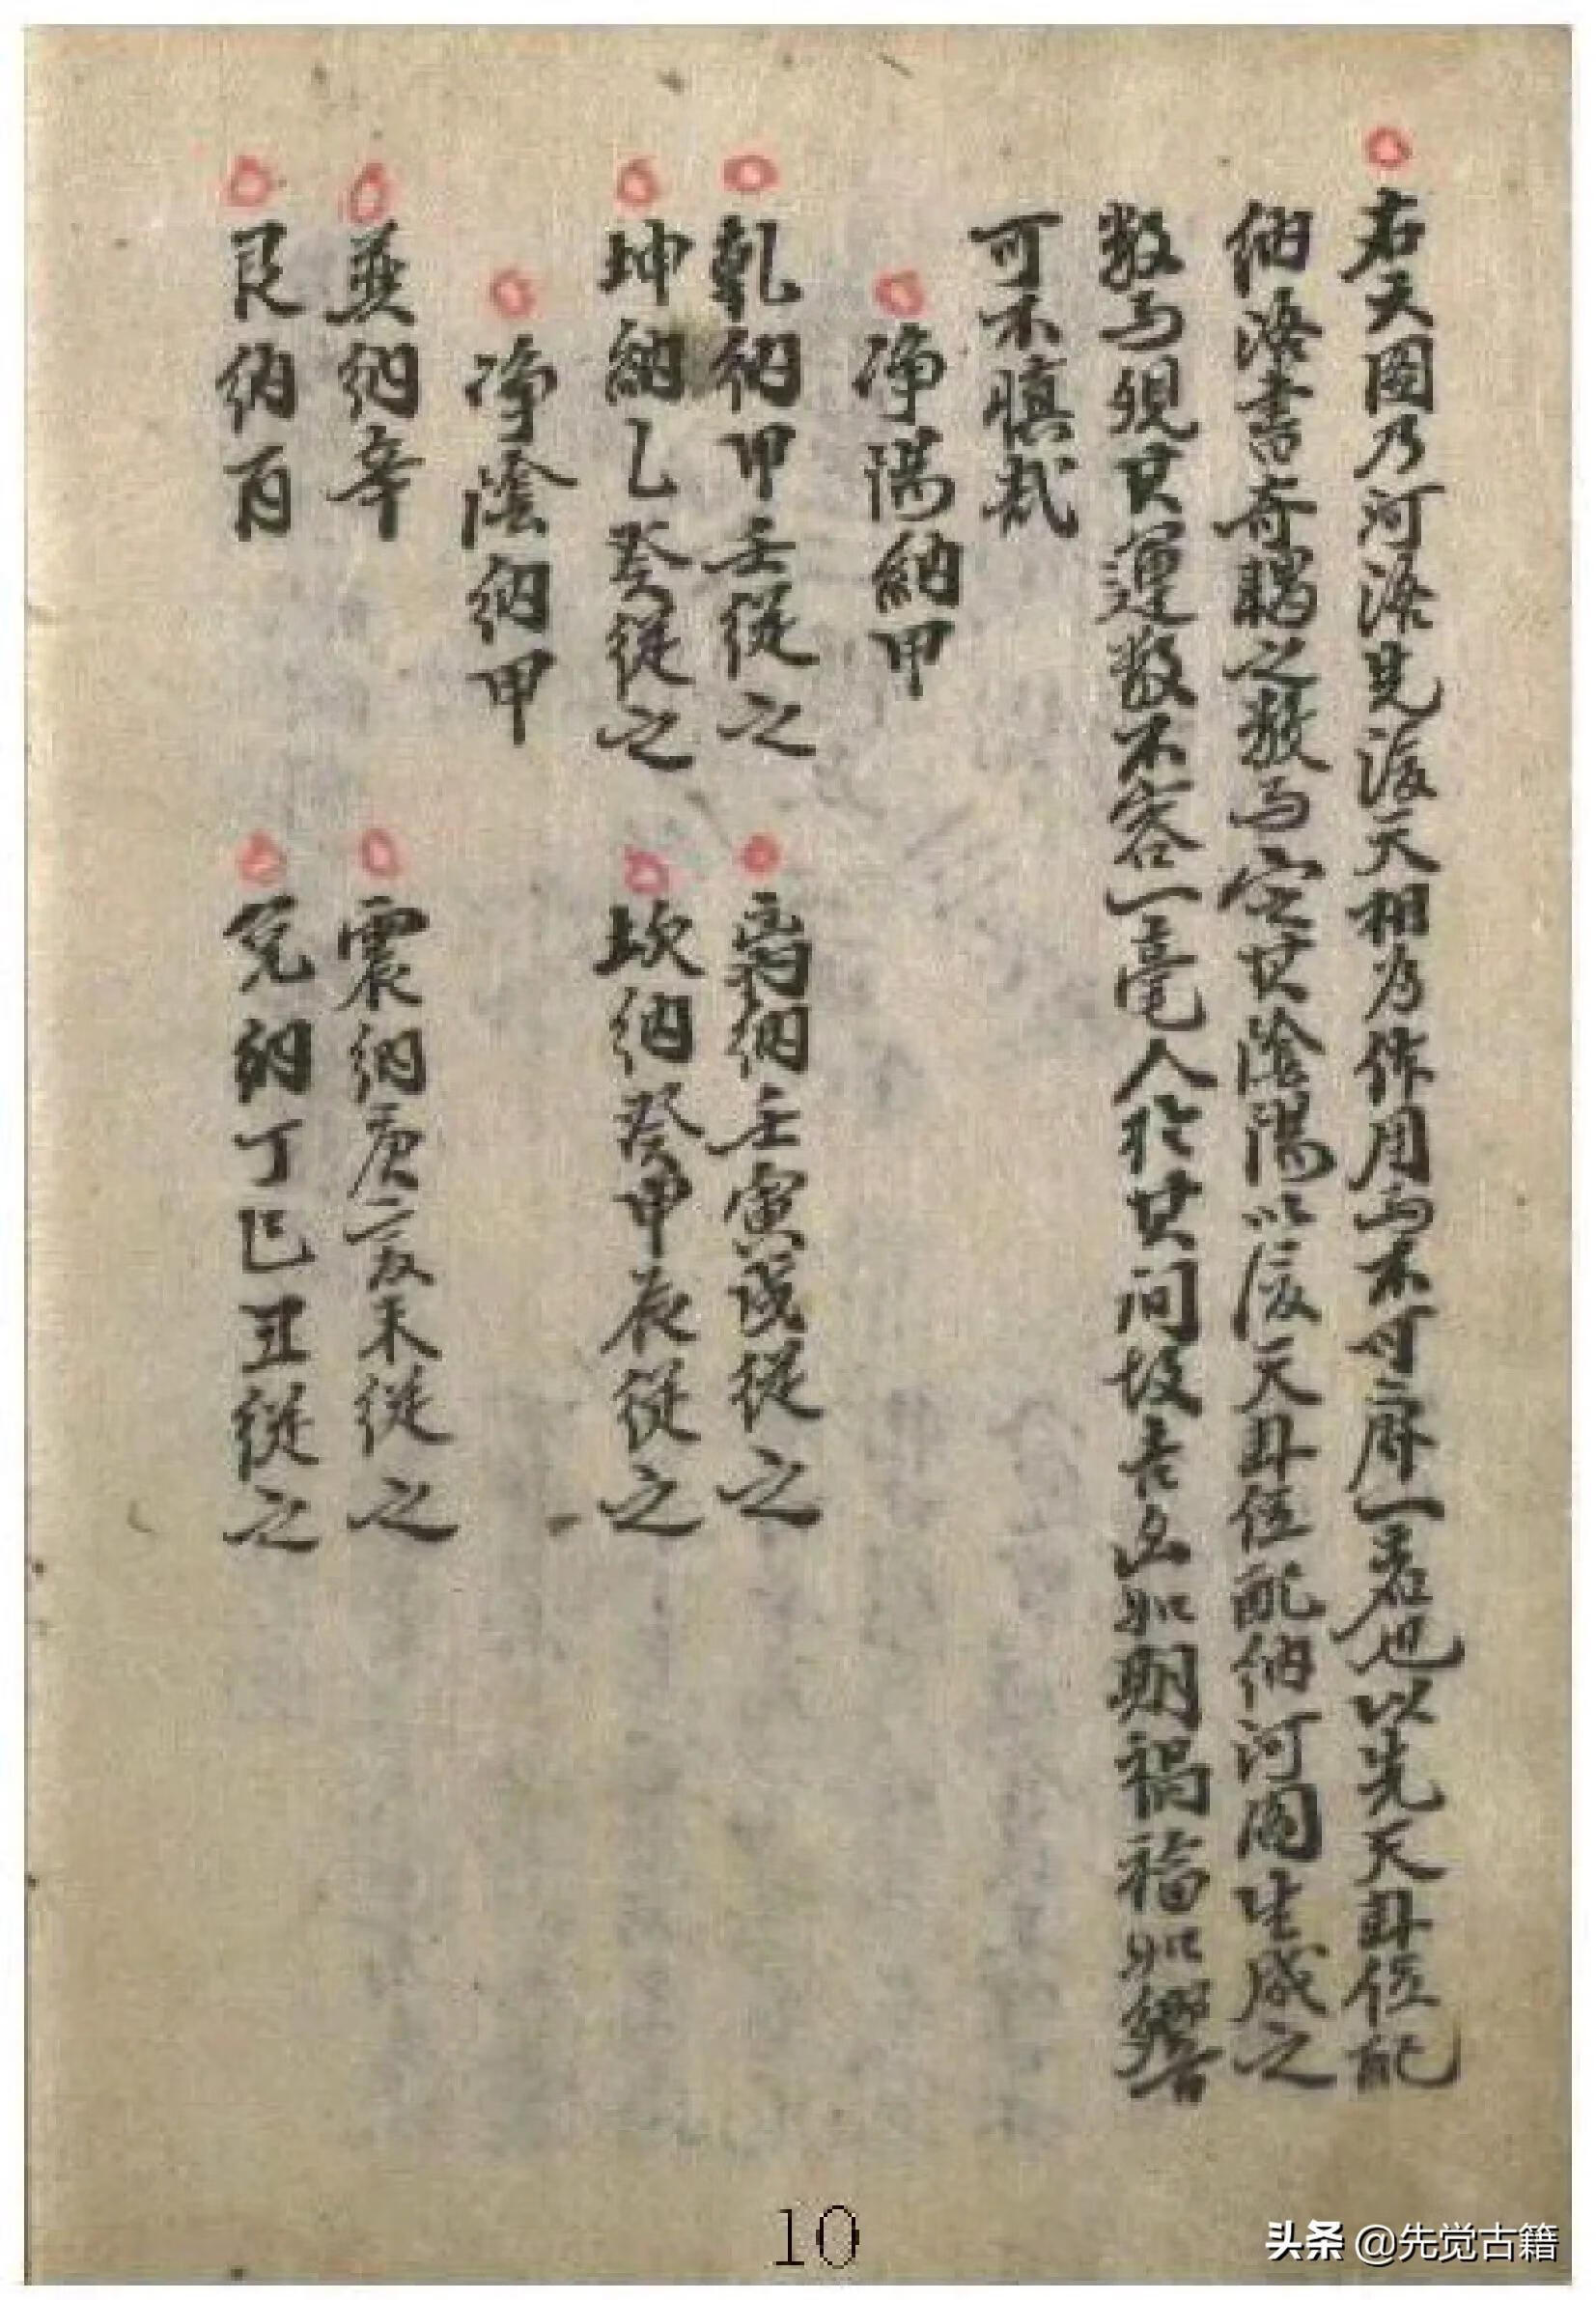 右天圖乃河洛先後天相為作用而不可廢一者也以先天卦位配
納洛書奇耦之數而定其陰陽以後天卦位配納河圖生成之
數而現其運數不容一毫人於其間故吉凶如期禍福如響
可不慎哉
净陽納甲
乾納甲壬從之 离納壬寅戌從之
坤納乙癸從之 坎納癸申辰從之
净陰納甲
巽納辛 震納庚亥未從之
艮納丙 兌納丁巳丑從之
10
头条 @先觉古籍